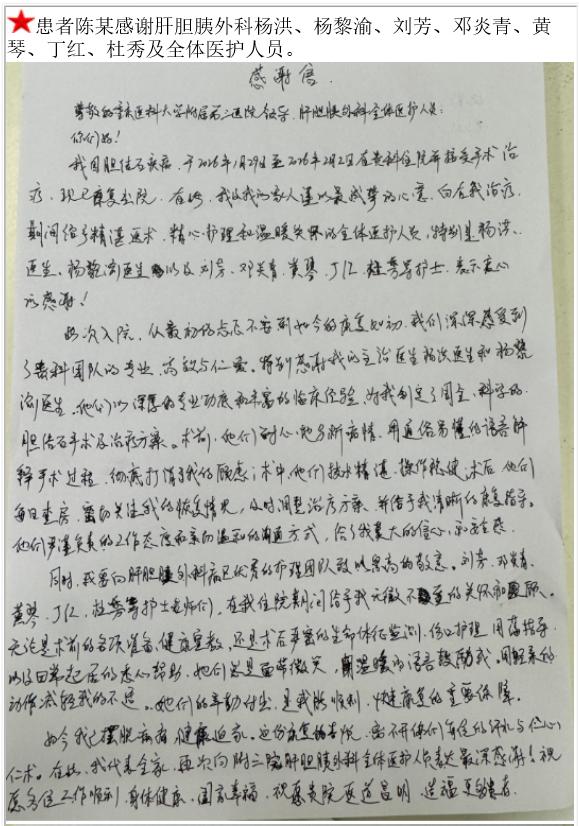 患者陈某感谢肝胆胰外科杨洪、杨黎渝、刘芳、邓炎青、黄
琴、丁红、杜秀及全体医护人员。
感谢信
尊敬的重庆医科大学附属第二医院领导、肝胆胰外科全体医护人员：
你们好！
我因胆结石疾病，于2026年1月29日至2026年2月2日在贵科住院并接受手术治
疗，现已康复出院，在此，我及我的家人谨以最诚挚的心意，向在我治疗
期间给予精湛医术、精心护理和温暖关怀的全体医护人员，特别是杨洪
医生、杨黎渝医生以及刘芳、邓炎青、黄琴、丁红、杜秀等护士，表示衷心
的感谢！
此次入院，从最初的忐忑不安到如今的康复如初，我们深深感受到
了贵科团队的专业、高效与仁爱。特别感谢我的主治医生杨洪医生和杨黎
渝医生，他们以深厚的专业功底和丰富的临床经验，为我制定了周全、科学的
胆结石手术及治疗方案。术前，他们耐心地分析病情，用通俗易懂的语言解
释手术过程，彻底打消了我的顾虑；术中，他们技术精湛，操作稳健；术后，他们
每日查房，密切关注我的恢复情况，及时调整治疗方案，并给予我清晰的康复指导。
他们严谨负责的工作态度和亲切温和的沟通方式，给了我莫大的信心和安全感。
同时，我要向肝胆胰外科病区优秀的护理团队致以崇高的敬意。刘芳、邓炎青、
黄琴、丁红、杜秀等护士老师们，在我住院期间给予我无微不至的关怀和照顾。
无论是术前的各项准备、健康宣教，还是术后严密的生命体征监测、伤口护理、用药指导，
以及日常起居的悉心帮助，她们总是面带微笑，用温暖的语言鼓励我，用娴熟的
动作减轻我的不适。她们的辛勤付出，是我能顺利、快速康复的重要保障。
如今我已摆脱病痛，健康返家。这份康复的喜悦，离不开你们每位的付出与仁心
仁术。在此，我代表全家，再次向附二院肝胆胰外科全体医护人员表达最深感谢！祝
愿各位工作顺利、身体健康、阖家幸福，祝愿贵院医道昌明、造福更多患者。